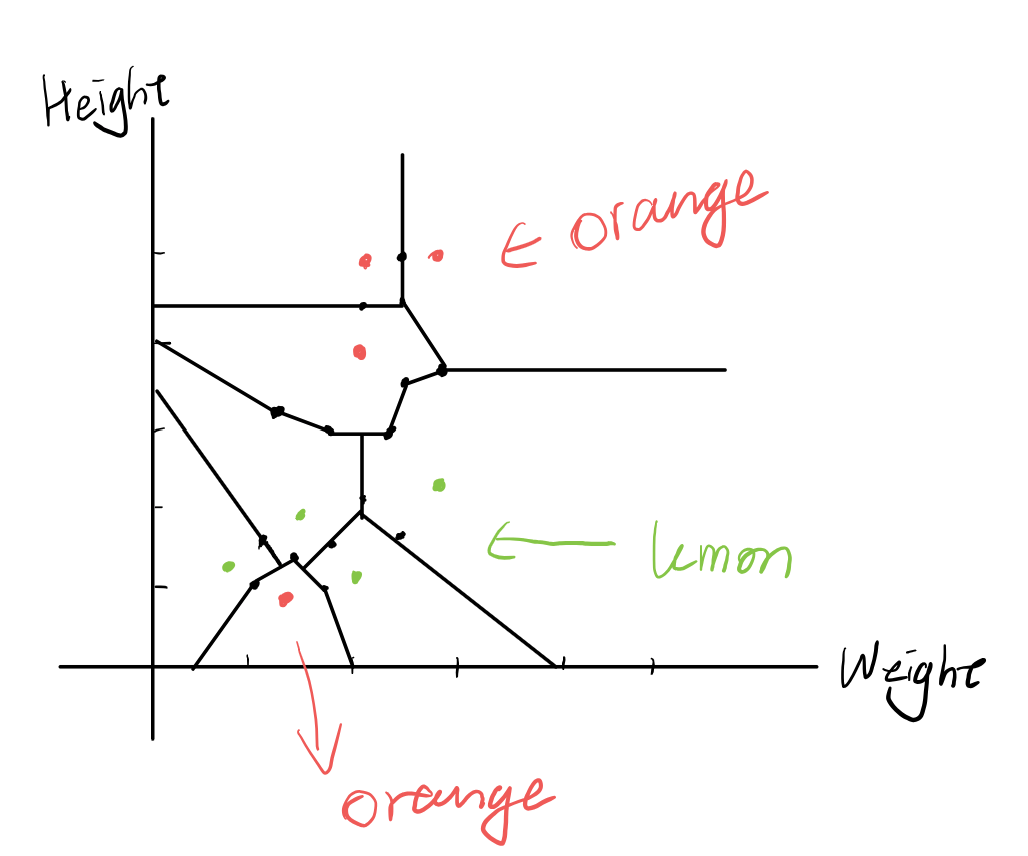 Height
← orange
← lemon
Weight
orange